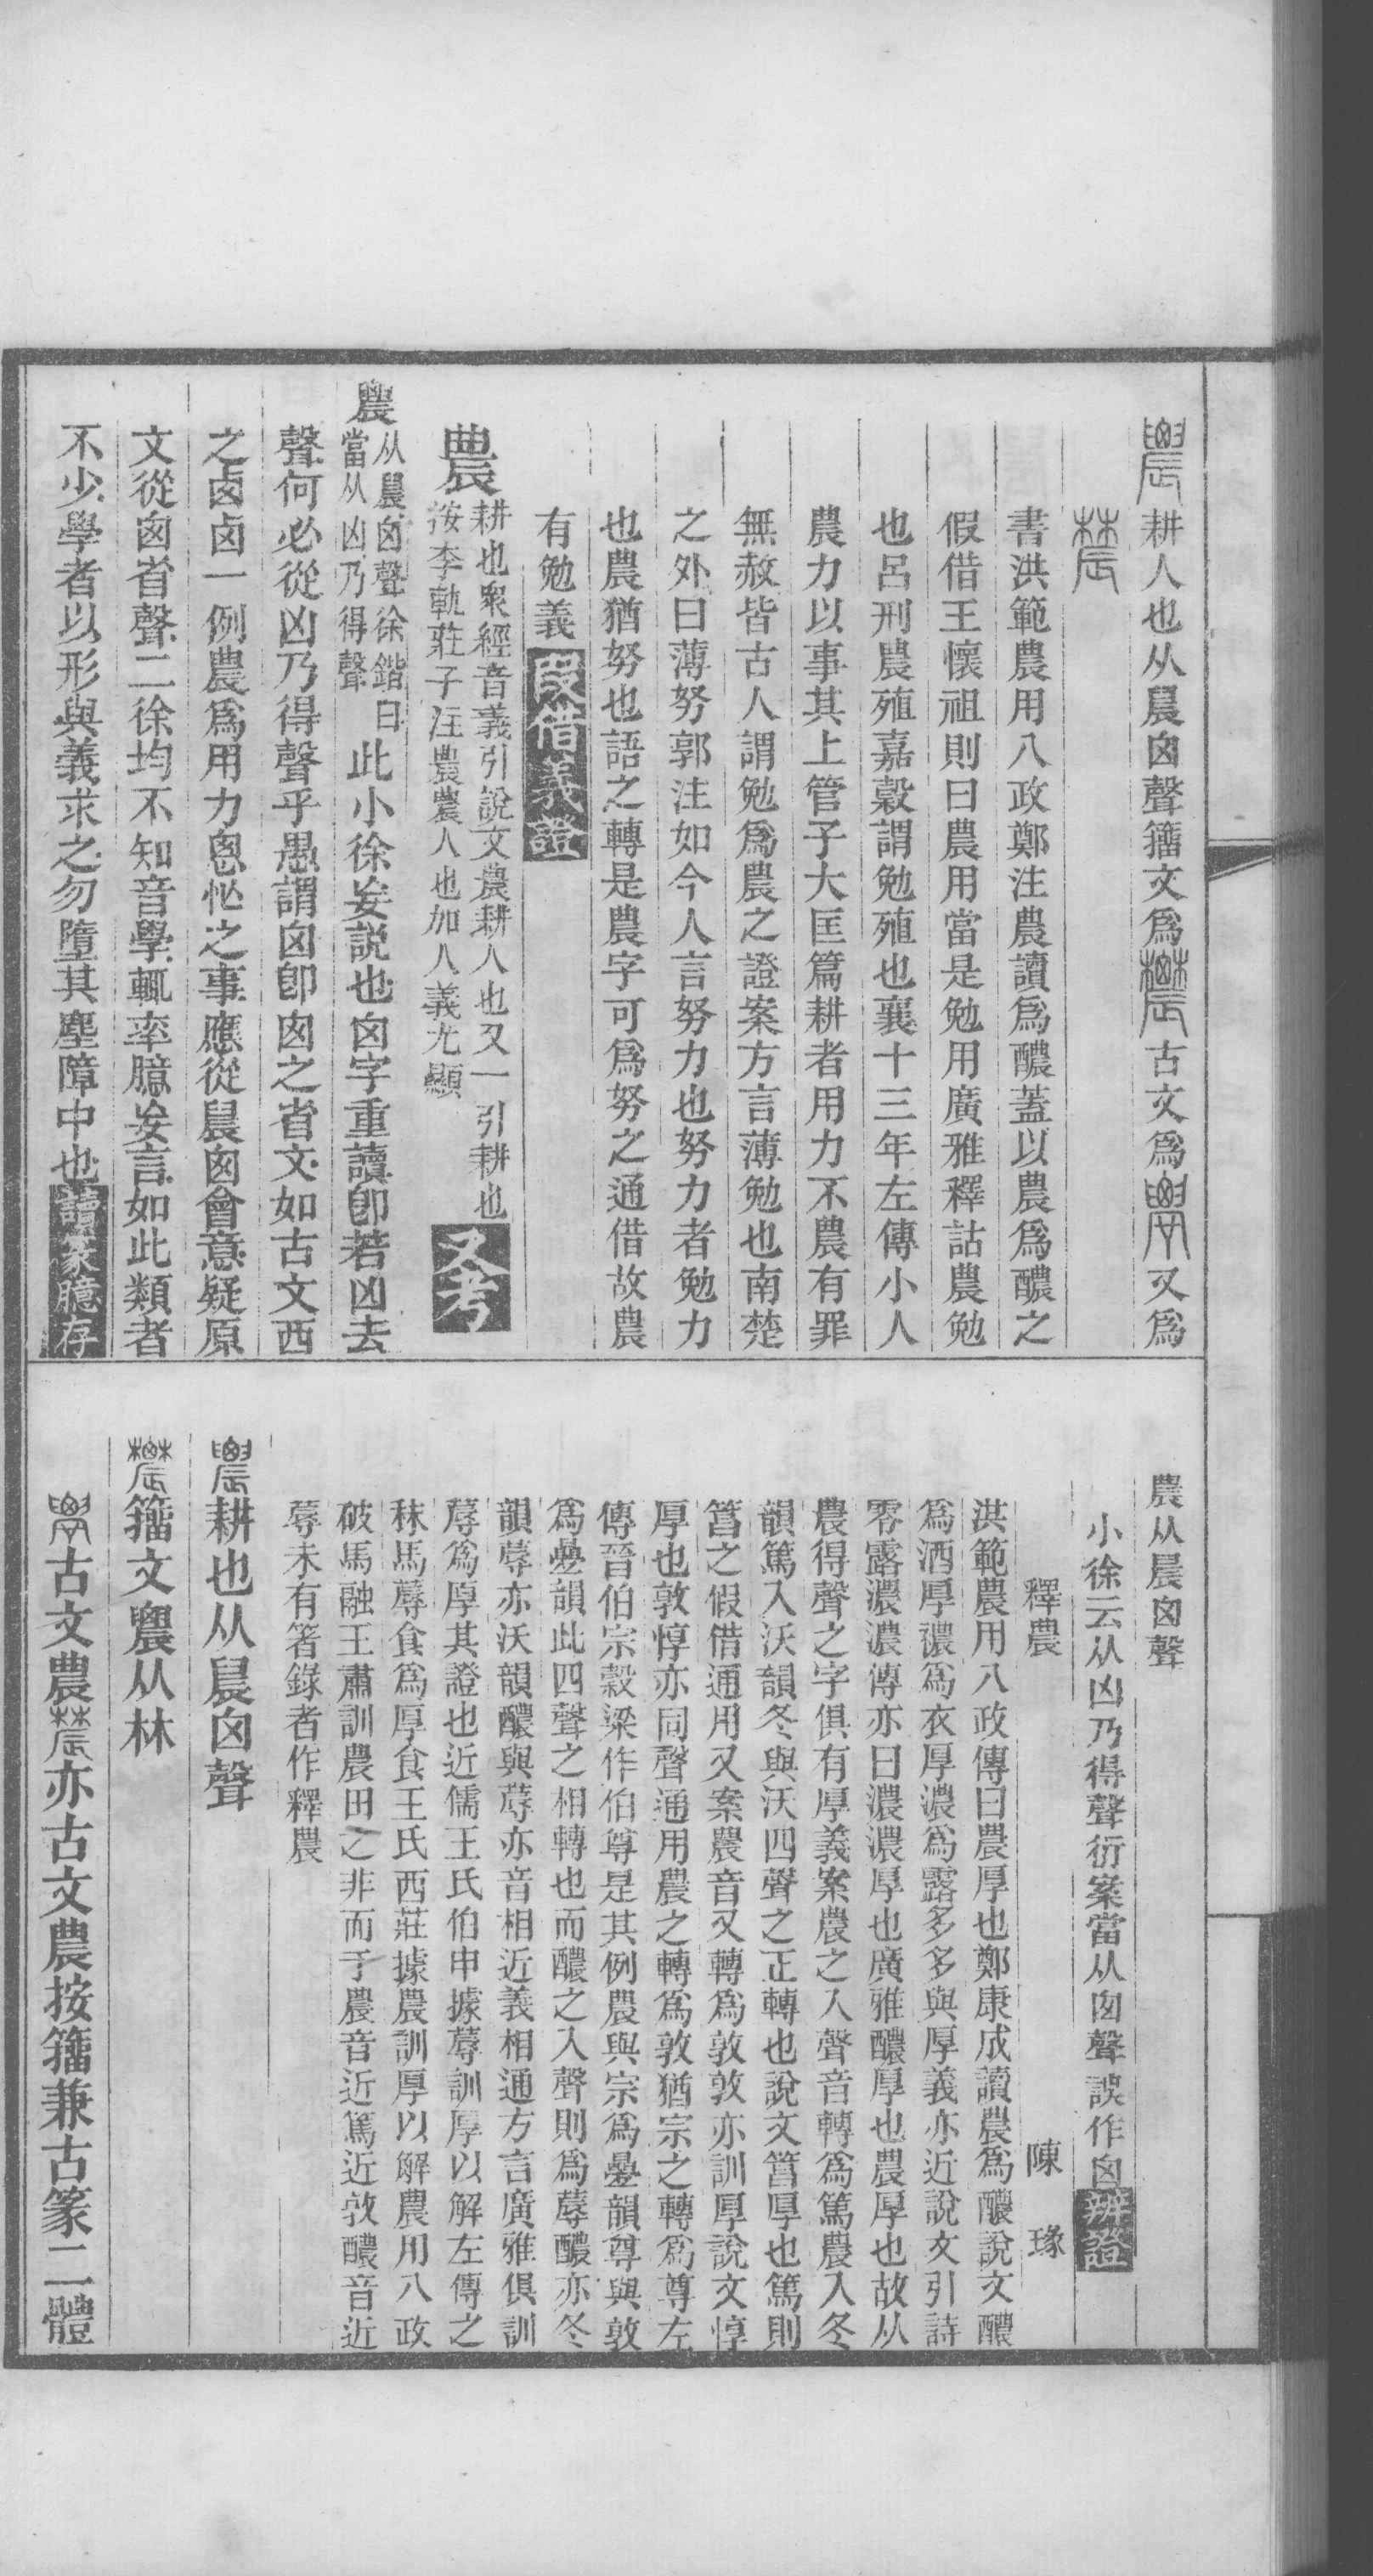 農耕人也从䢅囟聲籒文爲𦦥古文爲𨑋又爲
𣊽
書洪範農用八政鄭注農讀爲醲蓋以農爲醲之
假借王懷祖則曰農用當是勉用廣雅釋詁農勉
也呂刑農殖嘉穀謂勉殖也襄十三年左傳小人
農力以事其上管子大匡篇耕者用力不農有罪
無赦皆古人謂勉爲農之證案方言薄勉也南楚
之外曰薄努郭注如今人言努力也努力者勉力
也農猶努也語之轉是農字可爲努之通借故農
有勉義叚借義證
農耕也衆經音義引說文農耕人也又一引耕也
按李軌莊子注農農人也加人義尤顯 叉考
農从䢅囟聲徐鍇曰
當从凶乃得聲 此小徐妄説也囟字重讀卽若凶去
聲何必從凶乃得聲乎愚謂囟卽囱之省文如古文西
之卤卤一例農爲用力悤忙之事應從䢅囱會意疑原
文從囱省聲二徐均不知音學輒率臆妄言如此類者
不少學者以形與義求之勿墮其塵障中也讀篆臆存
農从䢅囟聲
小徐云从凶乃得聲衍案當从囱聲誤作囟辨證
釋農 陳瑑
洪範農用八政傳曰農厚也鄭康成讀農爲醲說文醲
爲酒厚襛爲衣厚濃爲露多多與厚義亦近說文引詩
零露濃濃傳亦曰濃濃厚也廣雅醲厚也農厚也故从
農得聲之字俱有厚義案農之入聲音轉爲篤農入冬
韻篤入沃韻冬與沃四聲之正轉也說文竺厚也篤則
䈞之假借通用又案農音又轉爲敦敦亦訓厚說文惇
厚也敦惇亦同聲通用農之轉爲敦猶宗之轉爲尊左
傳晉伯宗穀梁作伯尊是其例農與宗爲疊韻尊與敦
爲疊韻此四聲之相轉也而醲之入聲則爲蓐醲亦冬
韻蓐亦沃韻醲與蓐亦音相近義相通方言廣雅俱訓
蓐爲厚其證也近儒王氏伯申據蓐訓厚以解左傳之
秣馬蓐食爲厚食王氏西莊據農訓厚以解農用八政
破馬融王肅訓農田之非而于農音近篤近敦醲音近
蓐未有箸錄者作釋農
農耕也从䢅囟聲
𦦥籒文農从林
𨑋古文農𣊽亦古文農按籒兼古篆二體